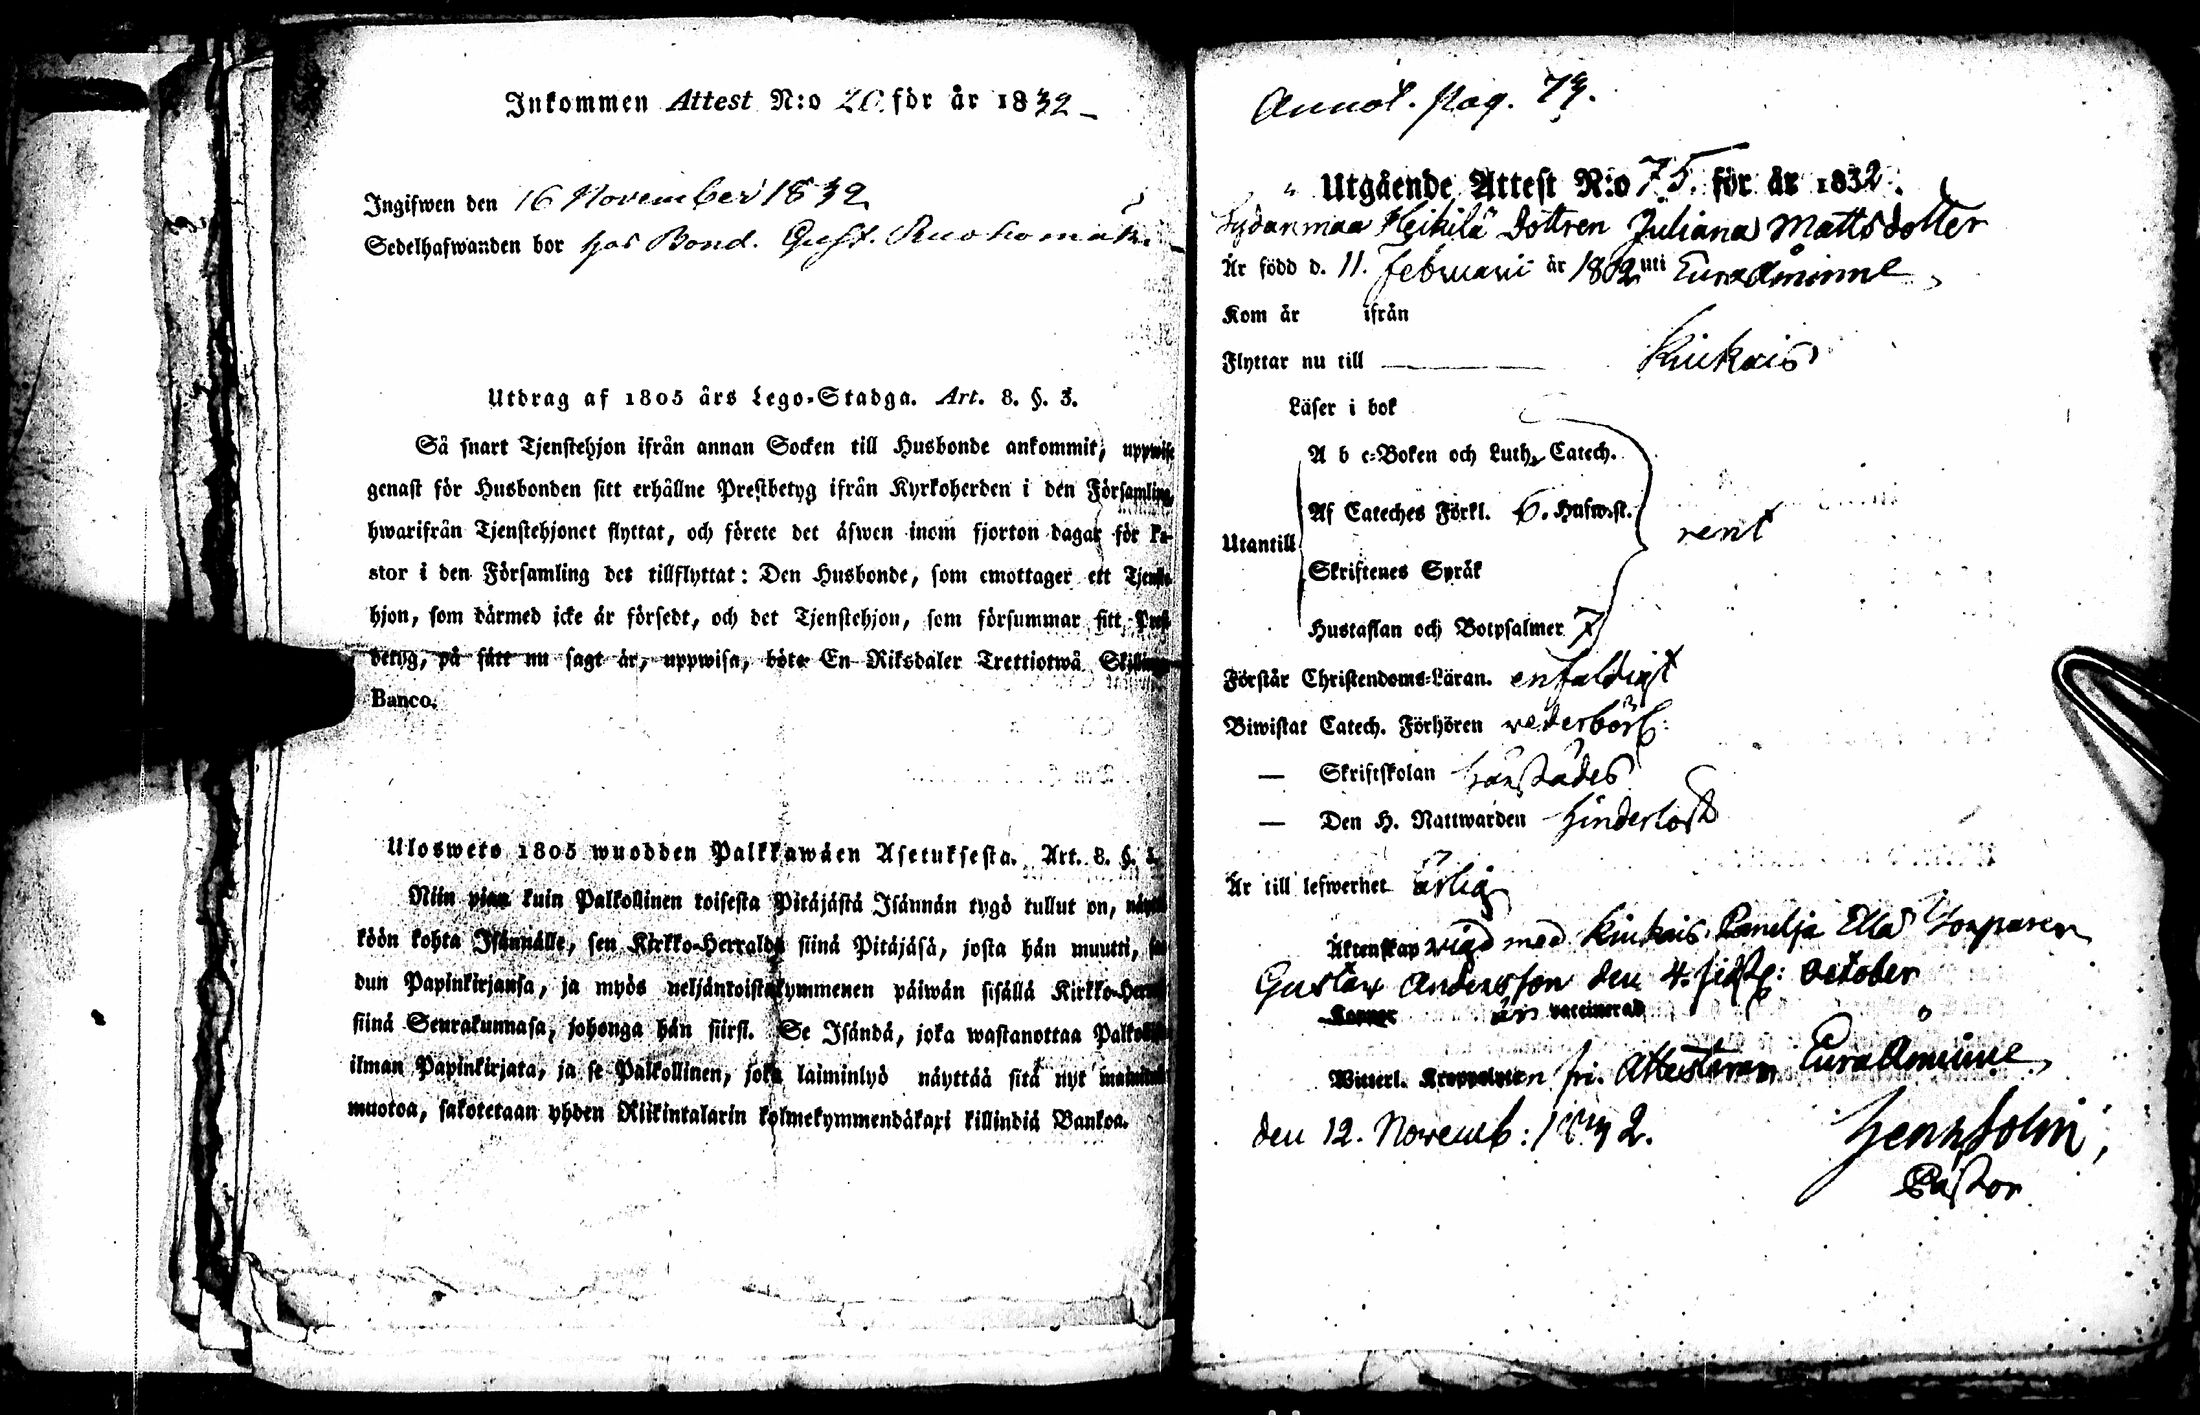 Inkommen Attest N:o 20. för år 1832
Ingifwen den 16 November 1832
Sedelhafwanden bor hos Bond. Gust. Ruohomäki
Utdrag af 1805 års Lego-Stadga. Art. 8. §. 3.
Så snart Tjenstehjon ifrån annan Socken till Husbonde ankommit, uppwise
genast för Husbonden sitt erhållne Prestbetyg ifrån Kyrkoherden i den Församling,
hwarifrån Tjenstehjonet flyttat, och förete det äfwen inom fjorton dagar för Pa-
stor i den Församling det tillflyttat: Den Husbonde, som emottager ett Tjenste-
hjon, som därmed icke är försedt, och det Tjenstehjon, som försummar sitt Prest-
betyg, på sätt nu sagt är, uppwisa, böte En Riksdaler Trettiotwå Skillingar
Banco.
Ulosweto 1805 wuodden Palkkawäen Asetuksesta. Art. 8. §. 3.
Niin pian kuin Palkollinen toisesta Pitäjästä Isännän tygö tullut on, näyttä-
köön kohta Isännälle, sen Kirkko-Herralda siinä Pitäjäsä, josta hän muutti,
dun Papinkirjansa, ja myös neljäntoistakymmenen päiwän sisällä Kirkko-Herralle
siinä Seurakunnasa, johonga hän siirst. Se Isändä, joka wastanottaa Palkollisen
ilman Papinkirjata, ja se Palkollinen, joka laiminlyö näyttää sitä nyt mainitun
muotoa, sakotetaan yhden Riikintalarin kolmekymmendäkaxi killindiä Bankoa.
Annot. pag. 79.
Utgående Attest N:o 75. för år 1832.
Sydänmaa Heikilä dottren Juliana Mattsdotter
Är född d. 11. februarii år 1802 uti Euraåminne,
Kom år ifrån
Flyttar nu till Kiukais
Läser i bok
A b c-Boken och Luth. Catech.
Af Cateches Förkl. 6. Hufwst.
Utantill rent
Skriftenes Språk
Hustaflan och Botpsalmer 7
Förstår Christendoms-Läran. enfaldigt
Biwistat Catech. Förhören vederbörl:
— Skriftskolan härstädes
— Den H. Nattwarden hinderlöst
Är till lefwernet ärlig
Äktenskap vigd med Kiukais, Panelja Ella Torparen
Gustaf Andersson den 4. sistl: October
Koppor är vaccinerad
Witterl. fr. Attesteram Euraåminne,
den 12. Novemb: 1832.
Pastor